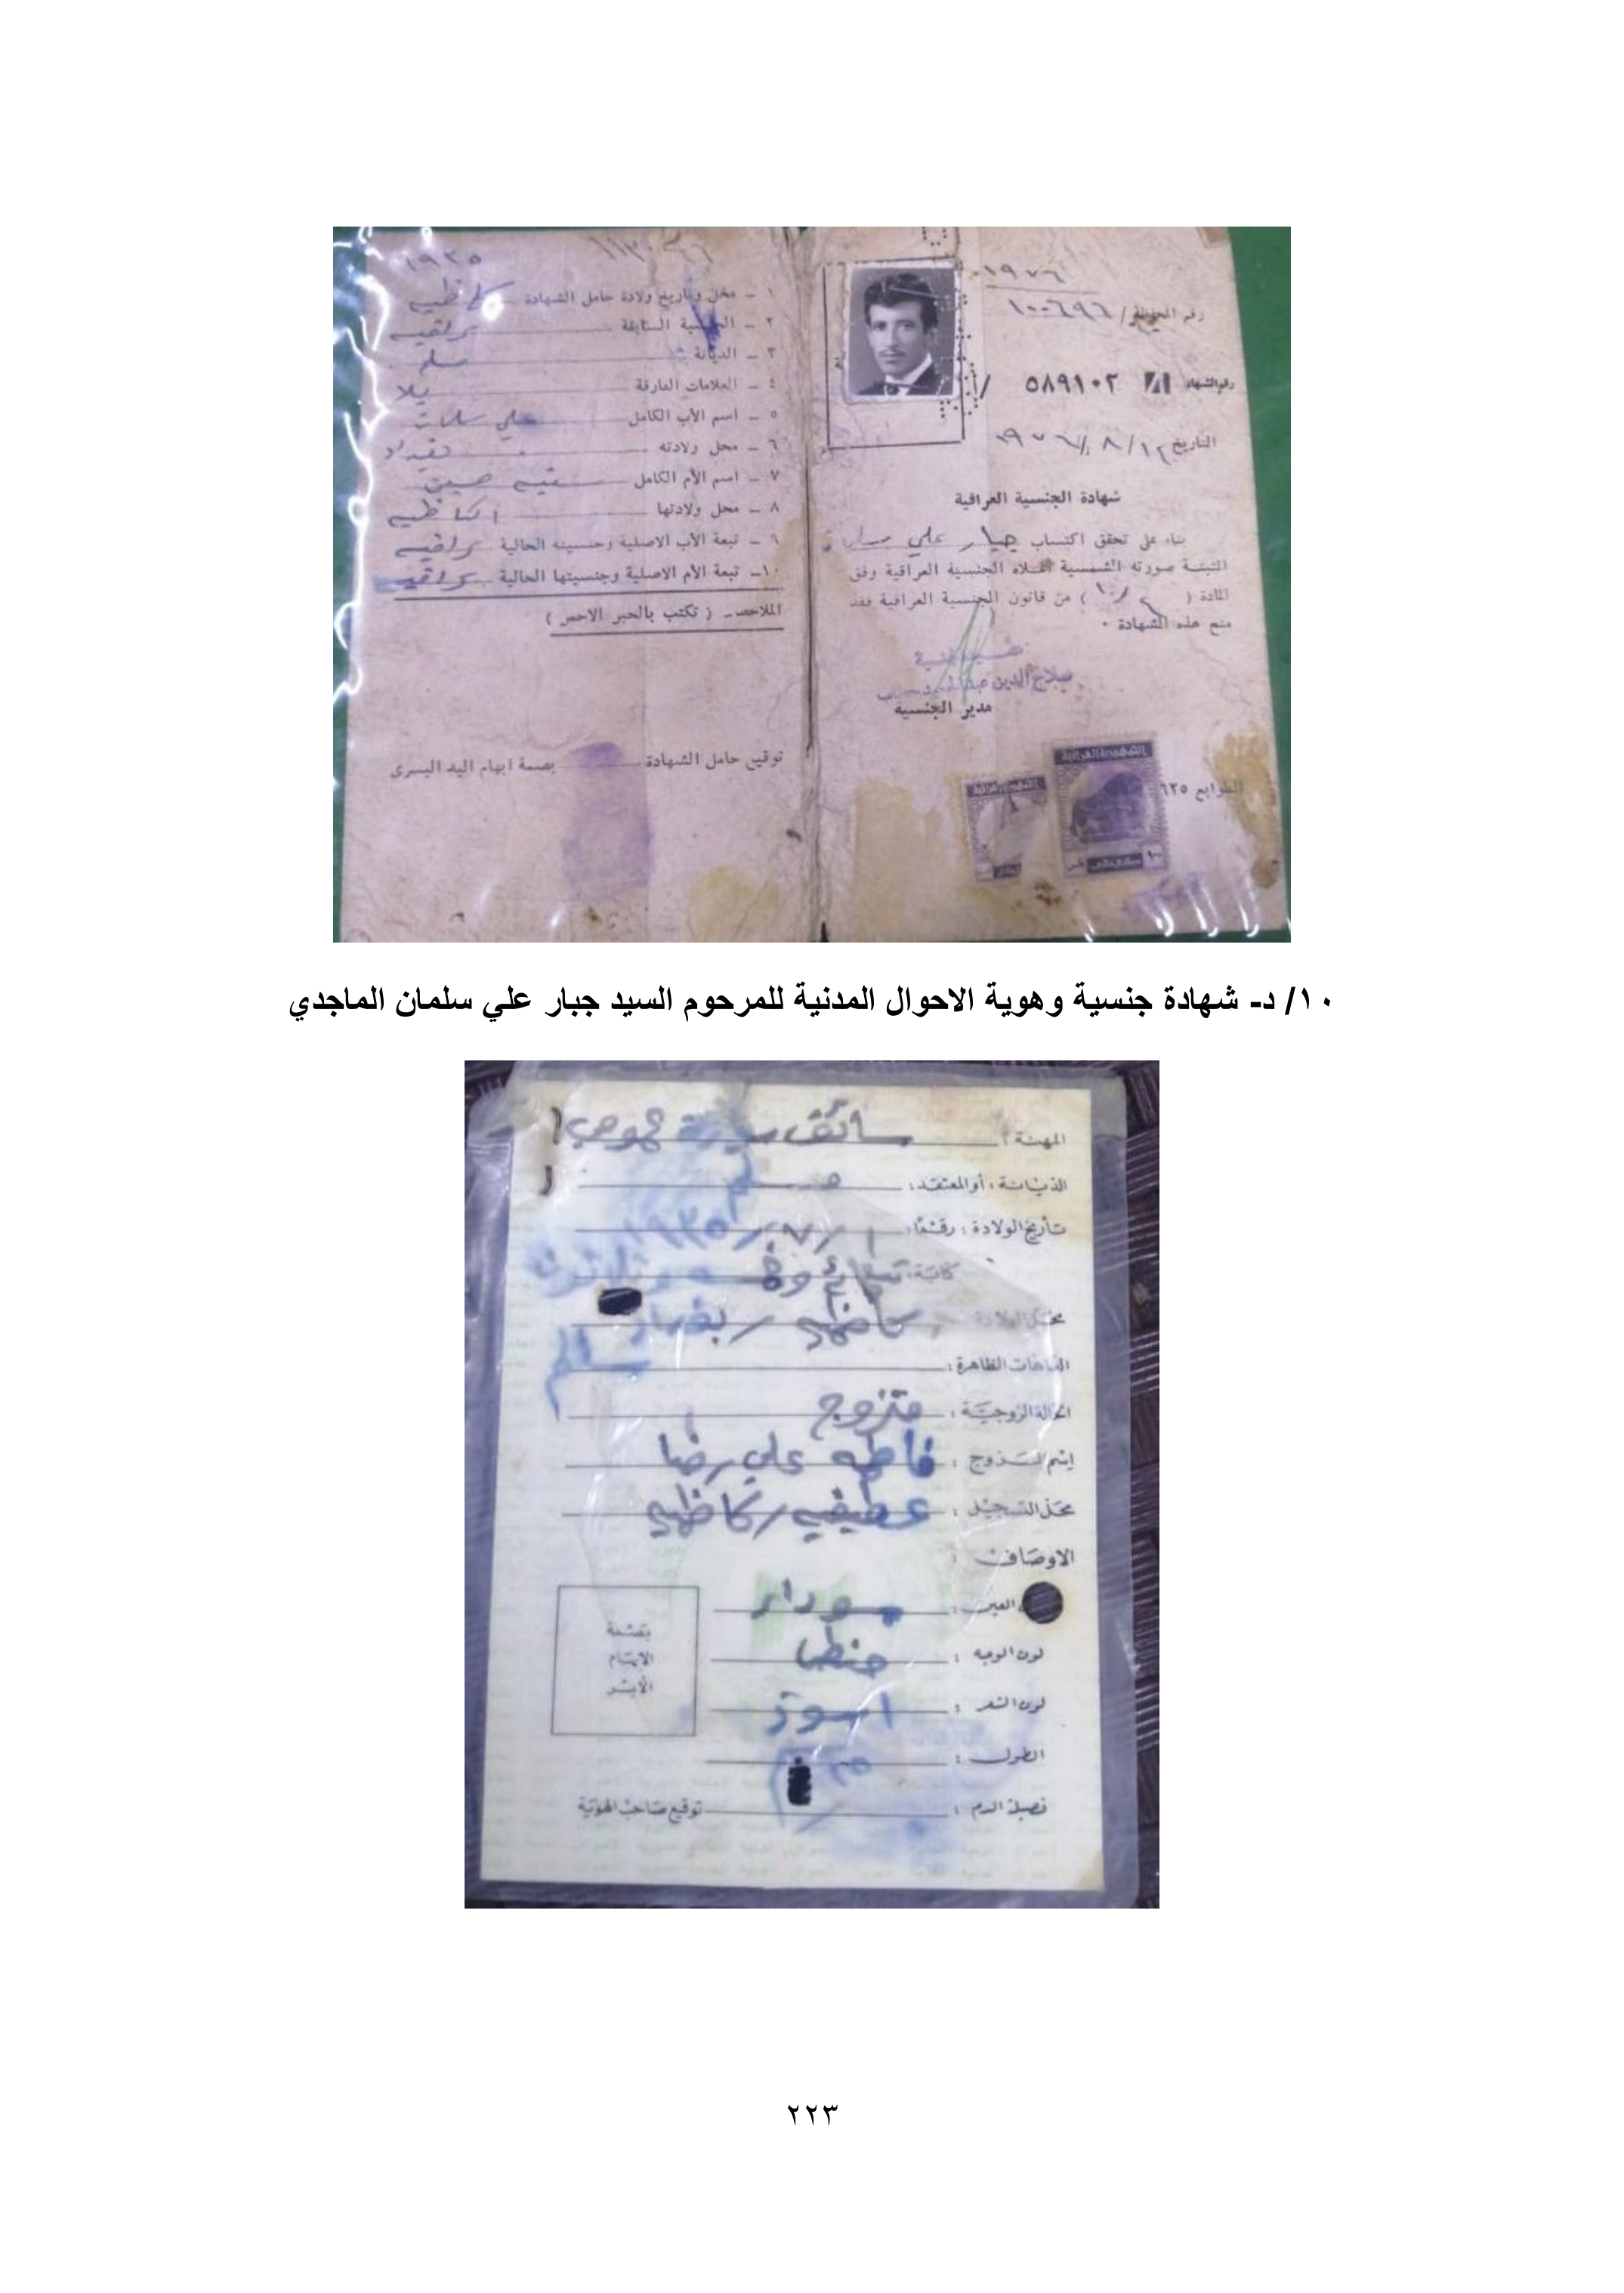 ١٩٧٦
رقم المحفظة / ١٠٠٦٩٦
رقم الشهادة أ / ٥٨٩١٠٢
التاريخ ١٢ / ٨ / ١٩٧٦
شهادة الجنسية العراقية
بناء على تحقق اكتساب جبار علي سلمان
المثبتة صورته الشمسية اعلاه الجنسية العراقية وفق
المادة ( ) من قانون الجنسية العراقية فقد
منح هذه الشهادة ٠
صلاح الدين
مدير الجنسية
الطوابع ٦٢٥
الجمهورية العراقية
١٩٣٥
١ ــ محل وتاريخ ولادة حامل الشهادة كاظمية
٢ ــ الجنسية السابقة عراقية
٣ ــ الديانة مسلم
٤ ــ العلامات الفارقة بلا
٥ ــ اسم الأب الكامل علي سلمان
٦ ــ محل ولادته بغداد
٧ ــ اسم الأم الكامل حسين
٨ ــ محل ولادتها الكاظمية
٩ ــ تبعة الأب الاصلية وجنسيته الحالية عراقية
١٠ــ تبعة الأم الاصلية وجنسيتها الحالية عراقية
الملاحص ــ ( تكتب بالحبر الاحمر )
توقيع حامل الشهادة بصمة ابهام اليد اليسرى
١٠/ د- شهادة جنسية وهوية الاحوال المدنية للمرحوم السيد جبار علي سلمان الماجدي
المهنة : سائق سيارة عمومي
الديانة ، أو المعتقد : مسلم
تأريخ الولادة : رقمًا : ١ / ٧ / ١٩٣٥
كتابة :
محل الولادة كاظمية / بغداد
العاهات الظاهرة : سالم
الحالة الزوجية : متزوج
إسم الزوج : فاطمه علي رضا
محل التسجيل : عطيفيه / كاظميه
الاوصاف :
العين :
لون الوجه : حنطي
لون الشعر : اسود
الطول :
فصيلة الدم : توقيع صاحب الهوية
بصمة
الابهام
الأيسر
٢٢٣